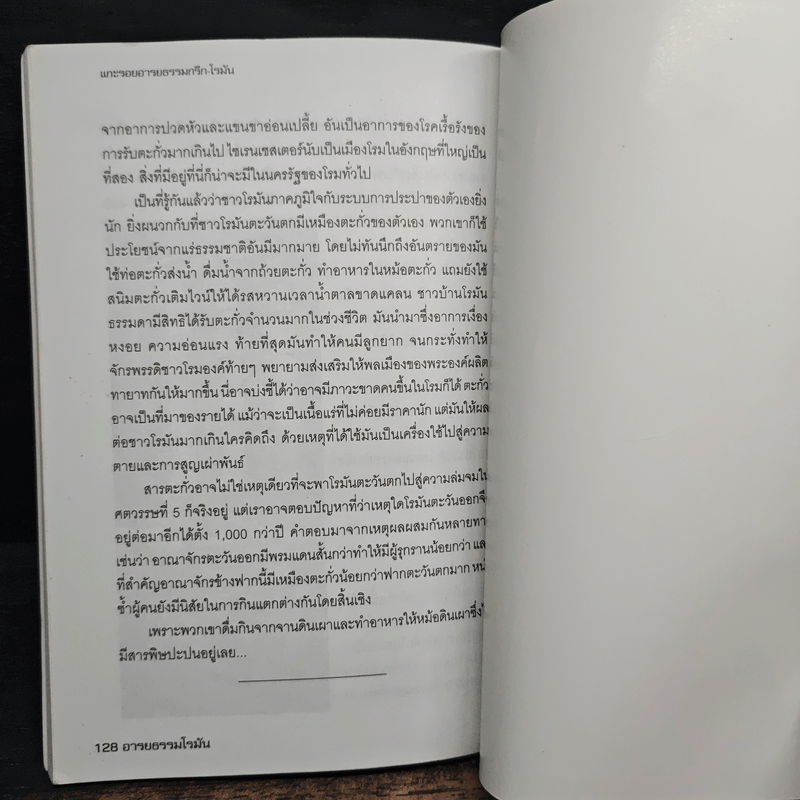 แกะรอยอารยธรรมกรีก-โรมัน
จากอาการปวดหัวและแขนขาอ่อนเปลี้ย อันเป็นอาการของโรคเรื้อรังของ
การรับตะกั่วมากเกินไป ไซเรนเซสเตอร์นับเป็นเมืองโรมในอังกฤษที่ใหญ่เป็น
ที่สอง สิ่งที่มีอยู่ที่นี่ก็น่าจะมีในนครรัฐของโรมทั่วไป
เป็นที่รู้กันแล้วว่าชาวโรมันภาคภูมิใจกับระบบการประปาของตัวเองยิ่ง
นัก ยิ่งผนวกกับที่ชาวโรมันตะวันตกมีเหมืองตะกั่วของตัวเอง พวกเขาก็ใช้
ประโยชน์จากแร่ธรรมชาติอันมีมากมาย โดยไม่ทันนึกถึงอันตรายของมัน
ใช้ท่อตะกั่วส่งน้ำ ดื่มน้ำจากถ้วยตะกั่ว ทำอาหารในหม้อตะกั่ว แถมยังใช้
สนิมตะกั่วเติมไวน์ให้ได้รสหวานเวลาน้ำตาลขาดแคลน ชาวบ้านโรมัน
ธรรมดามีสิทธิได้รับตะกั่วจำนวนมากในช่วงชีวิต มันนำมาซึ่งอาการเงื่อง
หงอย ความอ่อนแรง ท้ายที่สุดมันทำให้คนมีลูกยาก จนกระทั่งทำให้
จักรพรรดิชาวโรมองค์ท้ายๆ พยายามส่งเสริมให้พลเมืองของพระองค์ผลิต
ทายาทกันให้มากขึ้น นี่อาจบ่งชี้ได้ว่าอาจมีภาวะขาดคนขึ้นในโรมก็ได้ ตะกั่ว
อาจเป็นที่มาของรายได้ แม้ว่าจะเป็นเนื้อแร่ที่ไม่ค่อยมีราคานัก แต่มันให้ผล
ต่อชาวโรมันมากเกินใครคิดถึง ด้วยเหตุที่ได้ใช้มันเป็นเครื่องใช้ไปสู่ความ
ตายและการสูญเผ่าพันธ์
สารตะกั่วอาจไม่ใช่เหตุเดียวที่จะพาโรมันตะวันตกไปสู่ความล่มจมใน
ศตวรรษที่ 5 ก็จริงอยู่ แต่เราอาจตอบปัญหาที่ว่าเหตุใดโรมันตะวันออกจึ
อยู่ต่อมาอีกได้ตั้ง 1,000 กว่าปี คำตอบมาจากเหตุผลผสมกันหลายทา
เช่นว่า อาณาจักรตะวันออกมีพรมแดนสั้นกว่าทำให้มีผู้รุกรานน้อยกว่า แล
ที่สำคัญอาณาจักรข้างฟากนี้มีเหมืองตะกั่วน้อยกว่าฟากตะวันตกมาก หน
ซ้ำผู้คนยังมีนิสัยในการกินแตกต่างกันโดยสิ้นเชิง
เพราะพวกเขาดื่มกินจากจานดินเผาและทำอาหารให้หม้อดินเผาซึ่งไ
มีสารพิษปะปนอยู่เลย...
128 อารยธรรมโรมัน